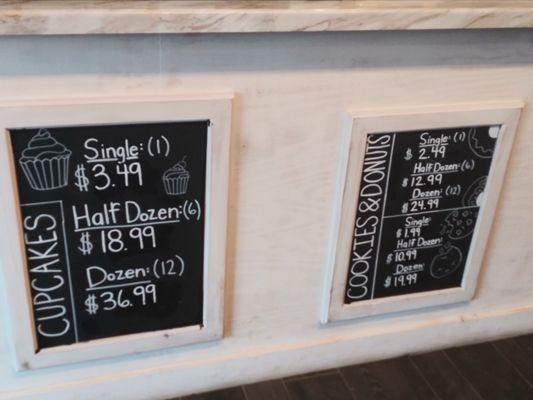 CUPCAKES
Single: (1)
$3.49
Half Dozen: (6)
$18.99
Dozen: (12)
$36.99
COOKIES & DONUTS
Single: (1)
$2.49
Half Dozen: (6)
$12.99
Dozen: (12)
$24.99
Single:
$1.99
Half Dozen:
$10.99
Dozen:
$19.99